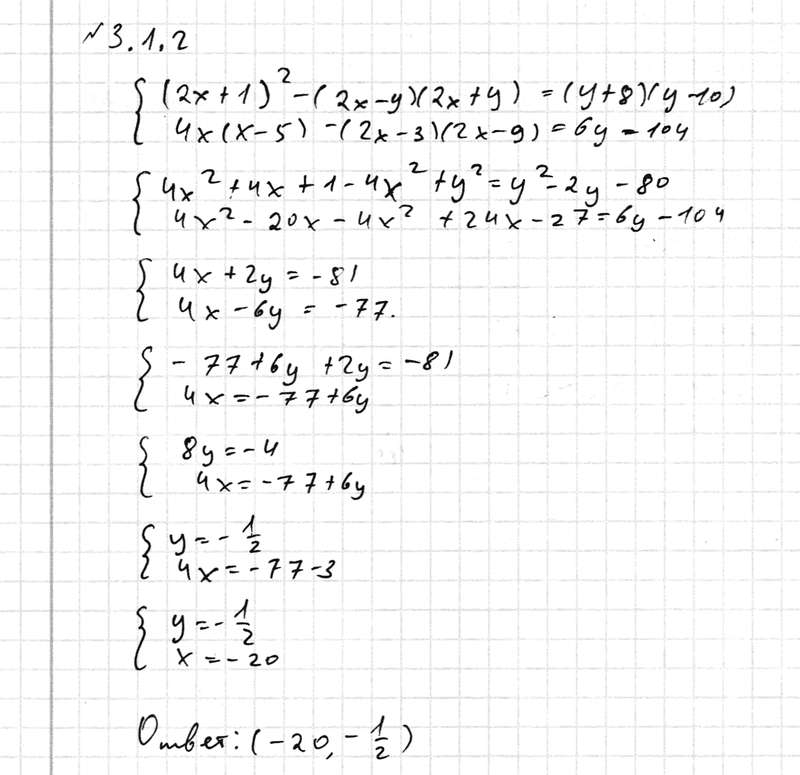 № 3.1.2
{ (2x+1)² - (2x-y)(2x+y) = (y+8)(y-10)
4x(x-5) - (2x-3)(2x-9) = 6y - 104
{ 4x² + 4x + 1 - 4x² + y² = y² - 2y - 80
4x² - 20x - 4x² + 24x - 27 = 6y - 104
{ 4x + 2y = -81
4x - 6y = -77.
{ - 77 + 6y + 2y = -81
4x = -77 + 6y
{ 8y = -4
4x = -77 + 6y
{ y = - 1/2
4x = -77 - 3
{ y = - 1/2
x = -20
Ответ: (-20, - 1/2)